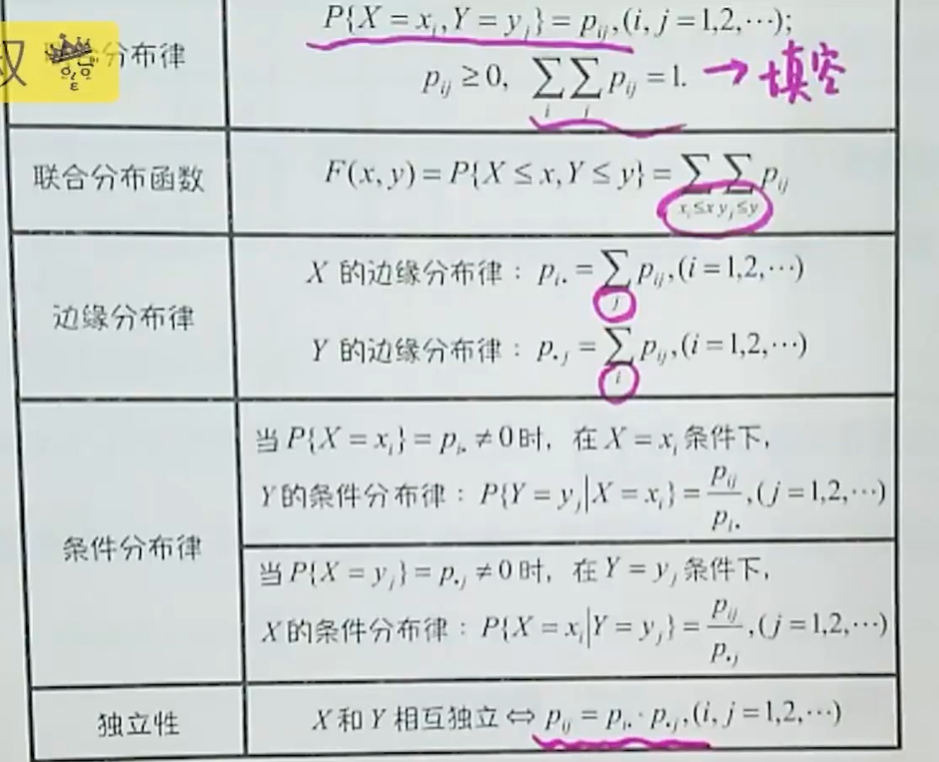 权
分布律
P{X = x_i, Y = y_j} = p_ij, (i, j = 1,2,⋯);
p_ij ≥ 0, ∑_i ∑_j p_ij = 1. → 填空
联合分布函数
F(x, y) = P{X ≤ x, Y ≤ y} = ∑_{x_i≤x} ∑_{y_j≤y} p_ij
边缘分布律
X 的边缘分布律：p_i• = ∑_j p_ij, (i = 1,2,⋯)
Y 的边缘分布律：p_•j = ∑_i p_ij, (i = 1,2,⋯)
条件分布律
当 P{X = x_i} = p_i• ≠ 0 时，在 X = x_i 条件下，
Y 的条件分布律：P{Y = y_j | X = x_i} = p_ij / p_i•, (j = 1,2,⋯)
当 P{X = y_j} = p_•j ≠ 0 时，在 Y = y_j 条件下，
X 的条件分布律：P{X = x_i | Y = y_j} = p_ij / p_•j, (j = 1,2,⋯)
独立性
X 和 Y 相互独立 ⇔ p_ij = p_i• · p_•j, (i, j = 1,2,⋯)